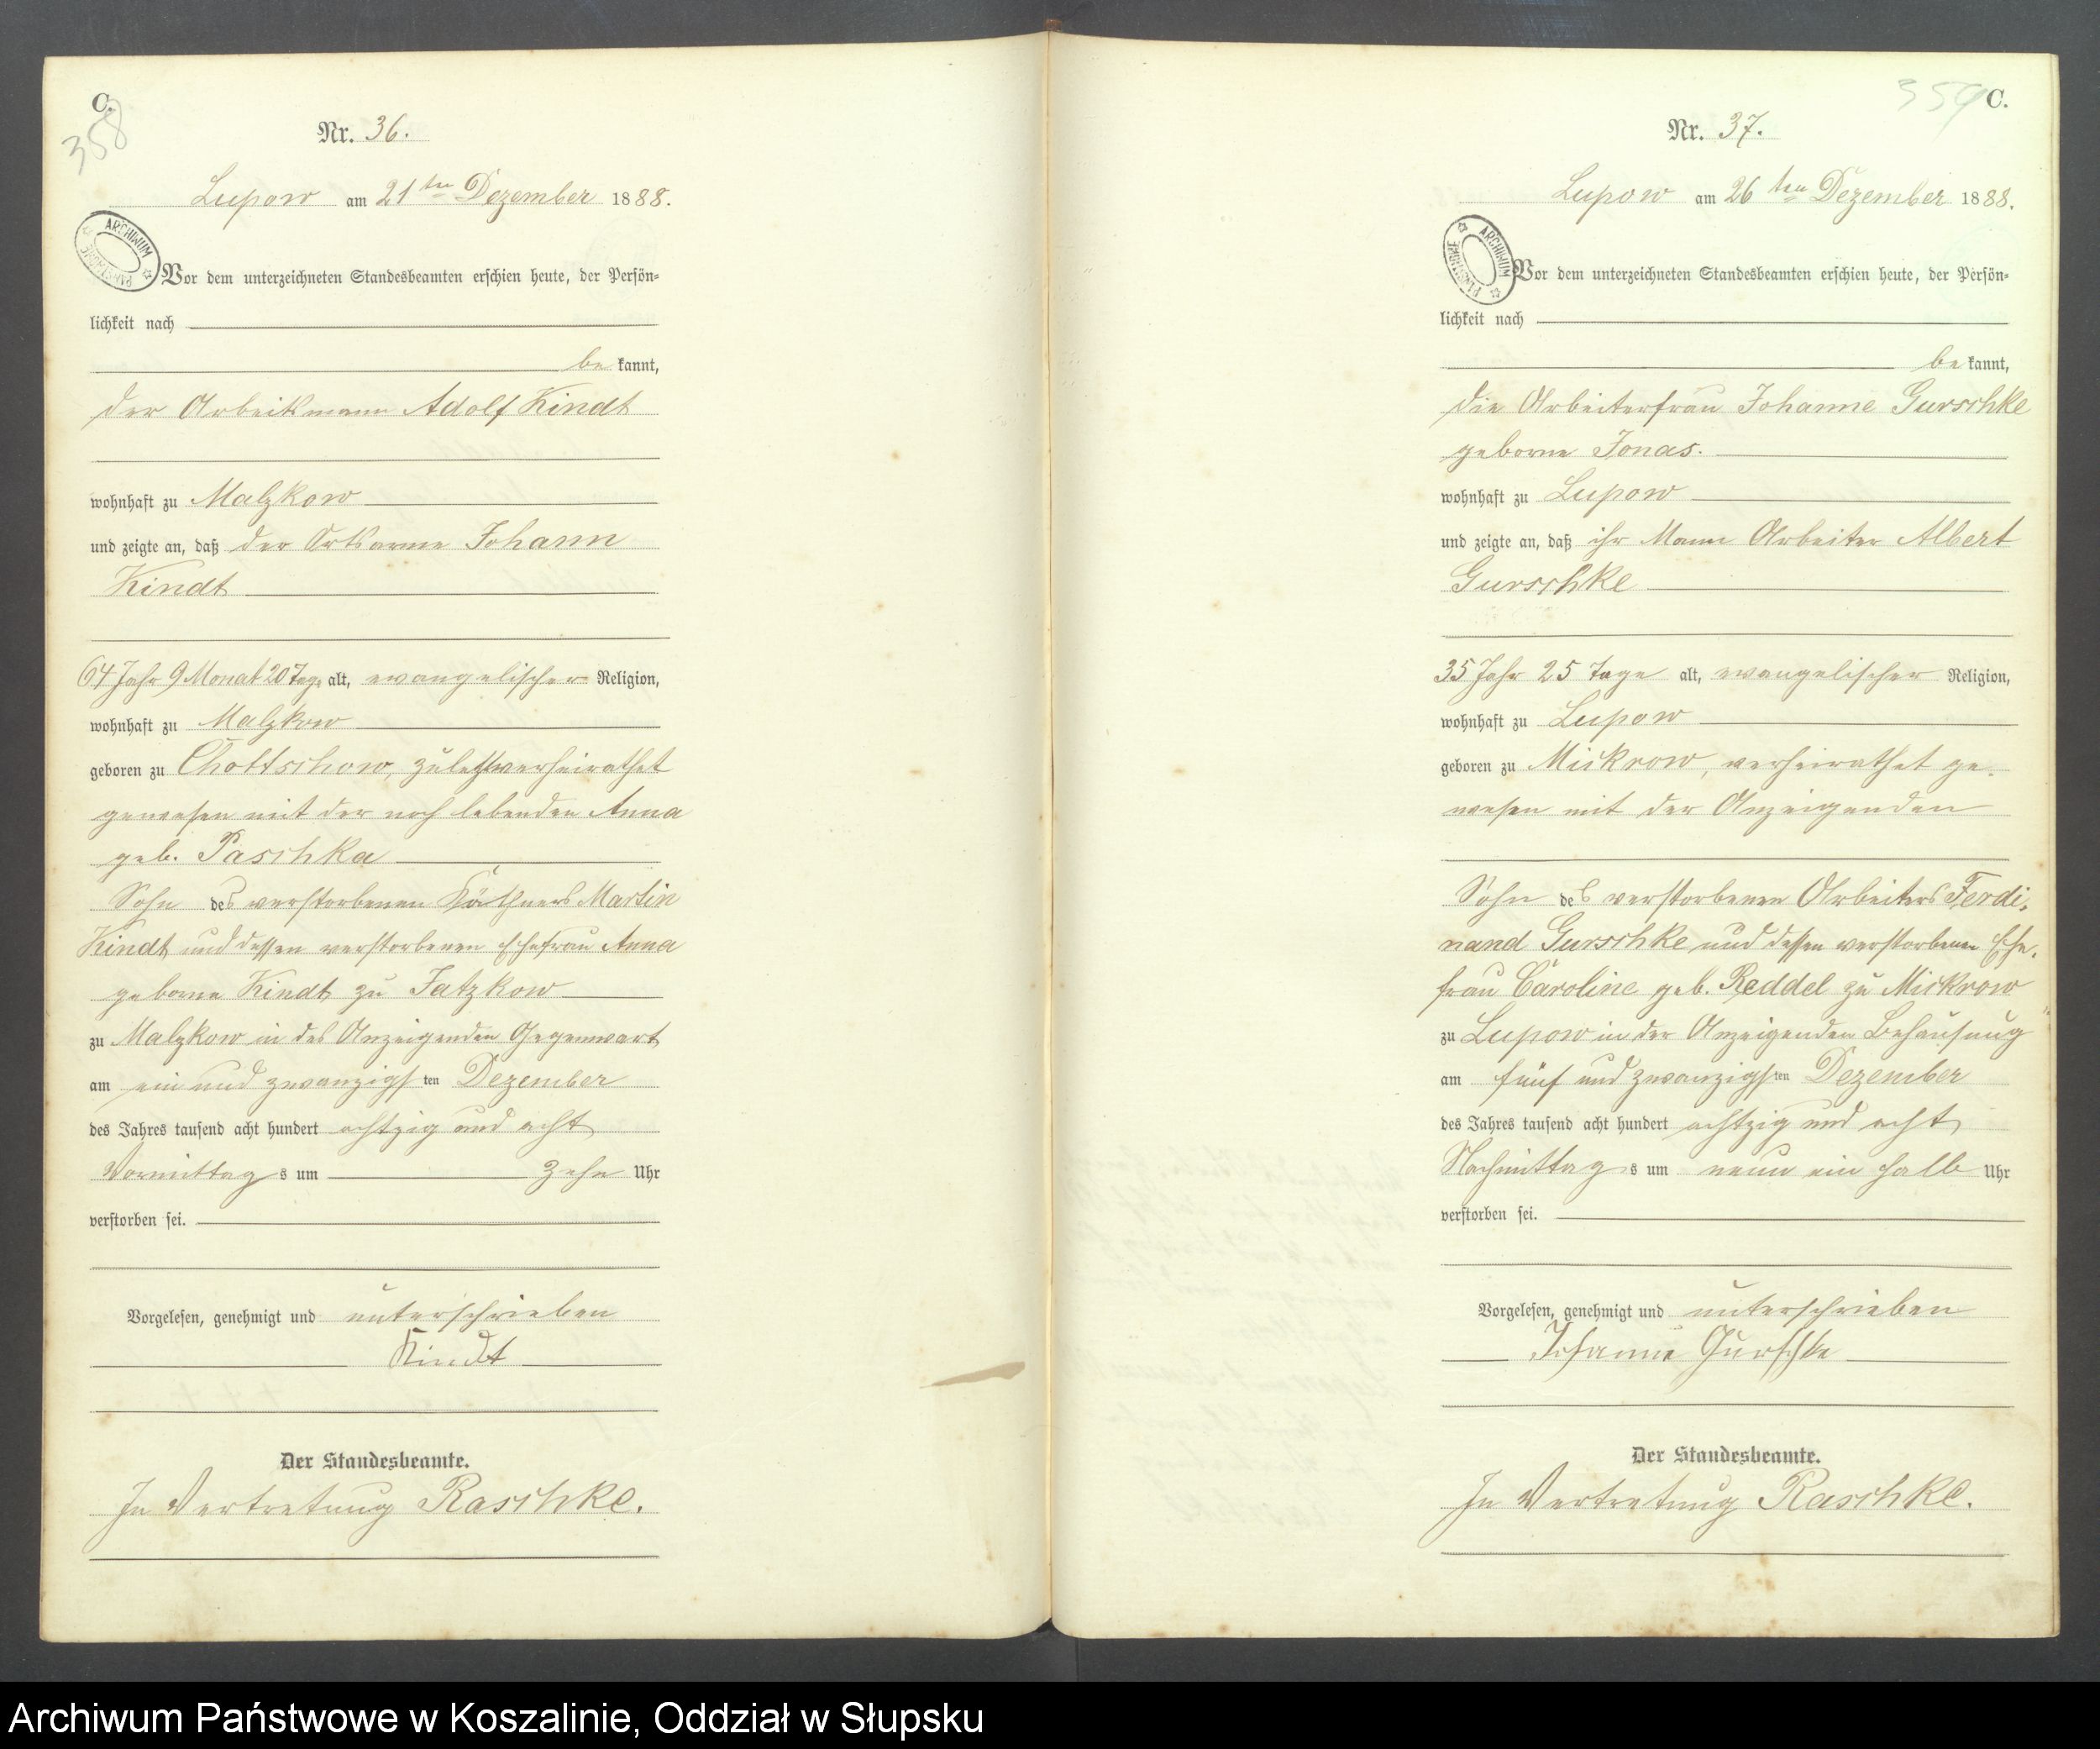 C.
358
Nr. 36.
Lupow am 21ten Dezember 1888.
ARCHIWUM PAŃSTWOWE
Vor dem unterzeichneten Standesbeamten erschien heute, der Persön-
lichkeit nach
be kannt,
der Arbeitsmann Adolf Kindt
wohnhaft zu Malzkow
und zeigte an, daß der Ortsarme Johann
Kindt
64 Jahr 9 Monat 20 Tage alt, evangelischer Religion,
wohnhaft zu Malzkow
geboren zu Chottschow, zuletzt verheirathet
gewesen mit der noch lebenden Anna
geb. Paschka
Sohn des verstorbenen Käthners Martin
Kindt und dessen verstorbenen Ehefrau Anna
geborne Kindt zu Jatzkow
zu Malzkow in des Anzeigenden Gegenwart
am ein und zwanzigsten Dezember
des Jahres tausend acht hundert achtzig und acht
Vormittags um zehn Uhr
verstorben sei.
Vorgelesen, genehmigt und unterschrieben
Kindt
Der Standesbeamte.
In Vertretung Raschke.
359 C.
Nr. 37.
Lupow am 26ten Dezember 1888.
ARCHIWUM PAŃSTWOWE
Vor dem unterzeichneten Standesbeamten erschien heute, der Persön-
lichkeit nach
be kannt,
die Arbeiterfrau Johanne Gurschke
geborne Jonas.
wohnhaft zu Lupow
und zeigte an, daß ihr Mann Arbeiter Albert
Gurschke
35 Jahr 25 Tage alt, evangelischer Religion,
wohnhaft zu Lupow
geboren zu Mickrow, verheirathet ge-
wesen mit der Anzeigenden
Sohn des verstorbenen Arbeiters Ferdi-
nand Gurschke und dessen verstorbenen Ehe-
frau Caroline geb. Reddel zu Mickrow
zu Lupow in der Anzeigenden Behausung
am fünf und zwanzigsten Dezember
des Jahres tausend acht hundert achtzig und acht
Nachmittags um neun ein halb Uhr
verstorben sei.
Vorgelesen, genehmigt und unterschrieben
Johanne Gurschke
Der Standesbeamte.
In Vertretung Raschke.
Archiwum Państwowe w Koszalinie, Oddział w Słupsku